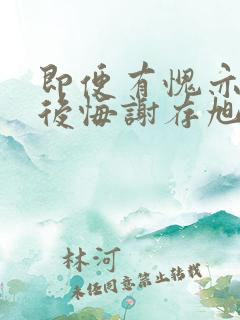 即便有愧亦
後悔謝存旭
林河
未任同意禁止转载